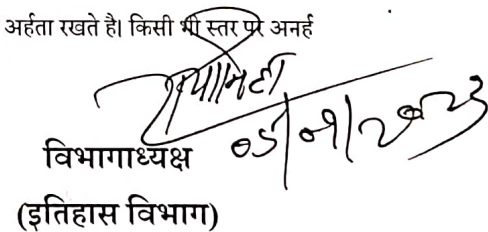 अर्हता रखते है। किसी भी स्तर पर अनर्ह
विभागाध्यक्ष
(इतिहास विभाग)